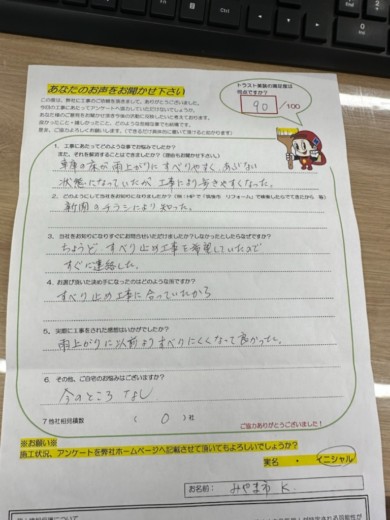 あなたのお声をお聞かせ下さい
トラスト実施の満足度は
何点ですか?
90/100
この度は、弊社に工事のご依頼を頂きまして、ありがとうございました。
1. 工事にあたってどのような事でお悩みでしたか?
また、それを解消することはできましたか?(理由もお聞かせ下さい。)
車庫の床が雨上がりにすべりやすく、あぶない
状態になっていたが工事により歩きやすくなった。
2. どのようにして当社をお知りになりましたか?
新聞のチラシにより知った。
3. 当社をお知りになりすぐにお問合せいただけましたか?しなかったとしたらなぜですか?
ちょうど、すべり止め工事を希望していたので
すぐに連絡した。
4. お選び頂いた決め手になったのはどのような所ですか?
すべり止め工事に合っていたから
5. 実際に工事をされた感想はいかがでしたか?
雨上がりに以前よりすべりにくくなって良かった。
6. その他、ご自宅のお悩みはございますか?
今のところなし
7 他社相見積数 ( 0 )社
ご協力ありがとうございました!
※お願い※
施工状況、アンケートを弊社ホームページへ記載させて頂いてもよろしいでしょうか?
実名 ・ イニシャル
お名前: みやま市 K.